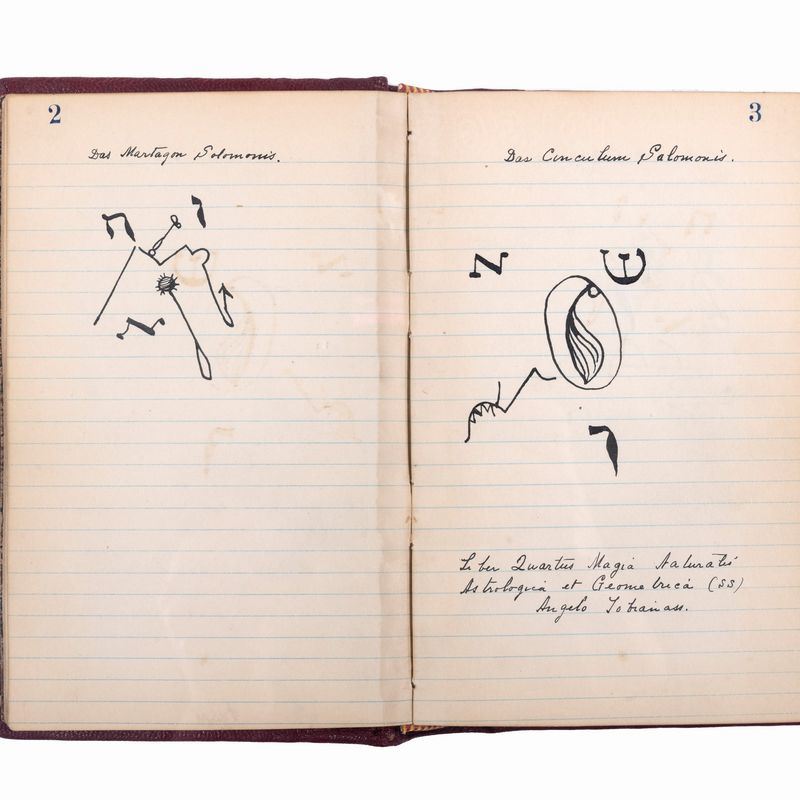 2
Das Martagon Solomonis.
ח
ו
3
Das Cinculum Salomonis.
Liber Quartus Magia Naturalis
Astrologica et Geometrica (SS)
Angelo